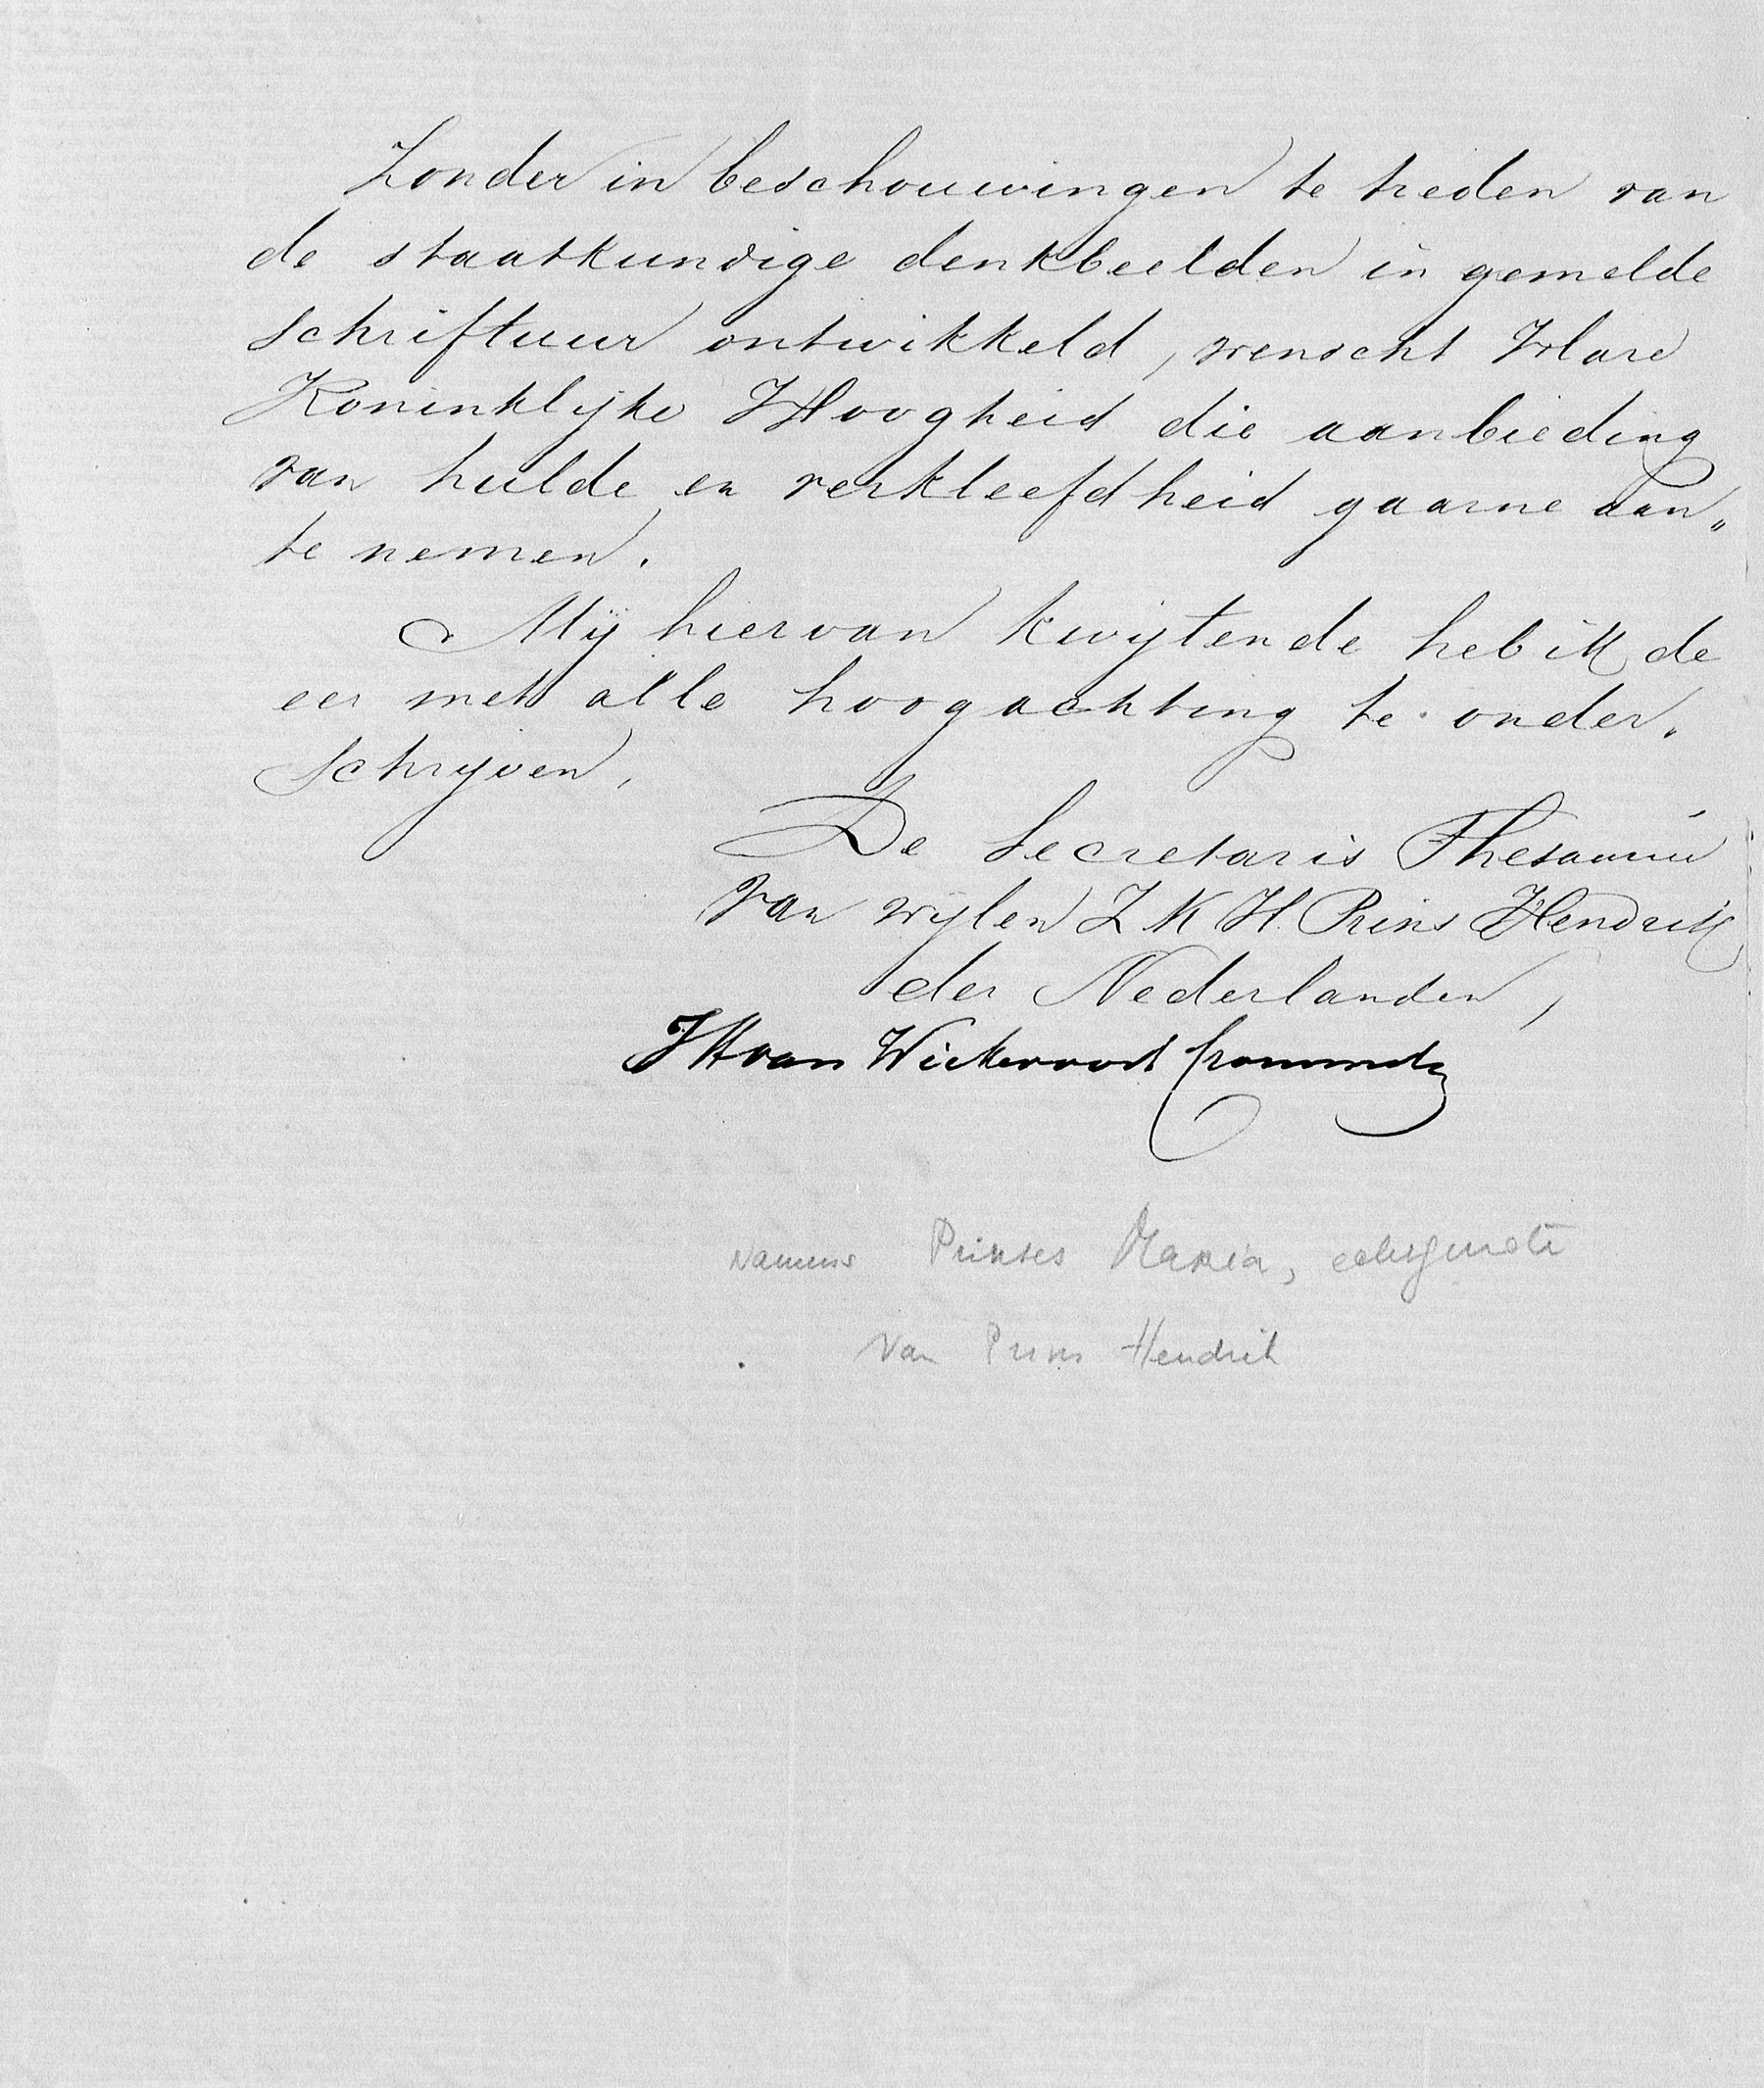 Zonder in beschouwingen te treden van
de staatkundige denkbeelden in gemelde
schriftuur ontwikkeld, wenscht Hare
Koninklijke Hoogheid die aanbieding
van hulde en verkleefdheid gaarne aan„
te nemen.
Mij hiervan kwijtende heb ik de
eer met alle hoogachting te onder.
schrijven,
De Secretaris Thesaurier
van wijlen Z K H. Prins Hendrik
der Nederlanden,
van Wickevoort Crommelin
Namens Prinses Maria, echtgenote
van Prins Hendrik